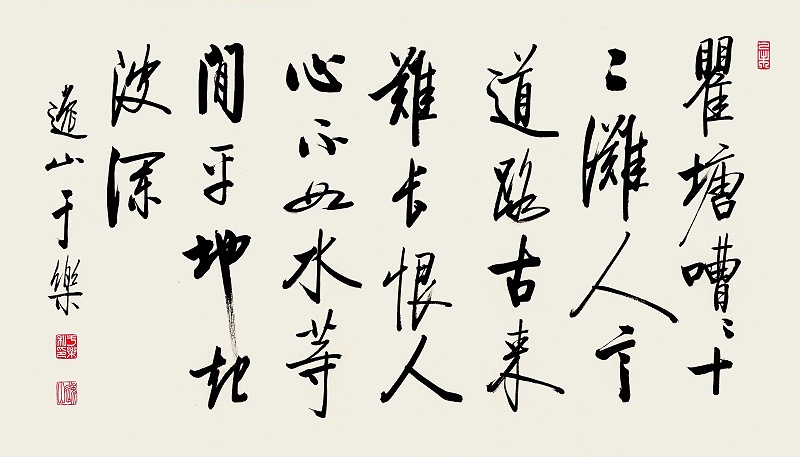 瞿塘嘈〻十
二灘人言
道路古来
難長恨人
心不如水等
閒平地起
波瀾
山于樂